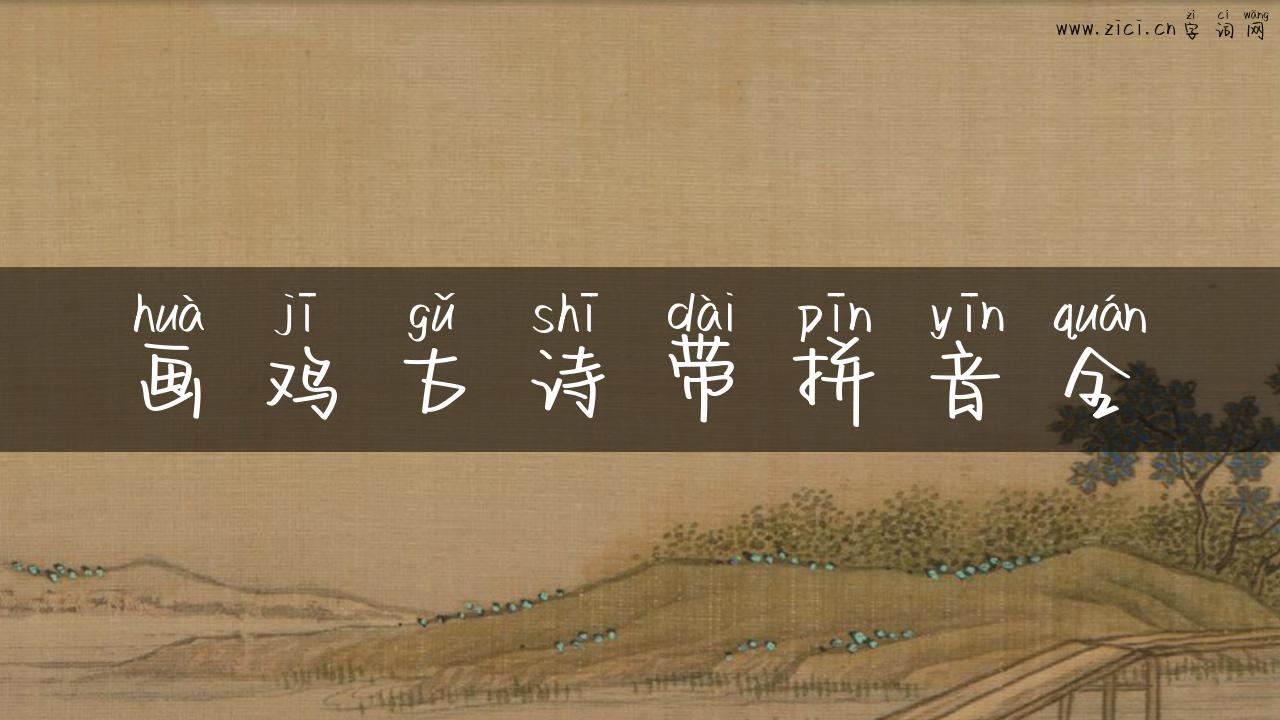 zì cí wǎng
www.zici.cn字词网
huà jī gǔ shī dài pīn yīn quán
画鸡古诗带拼音全